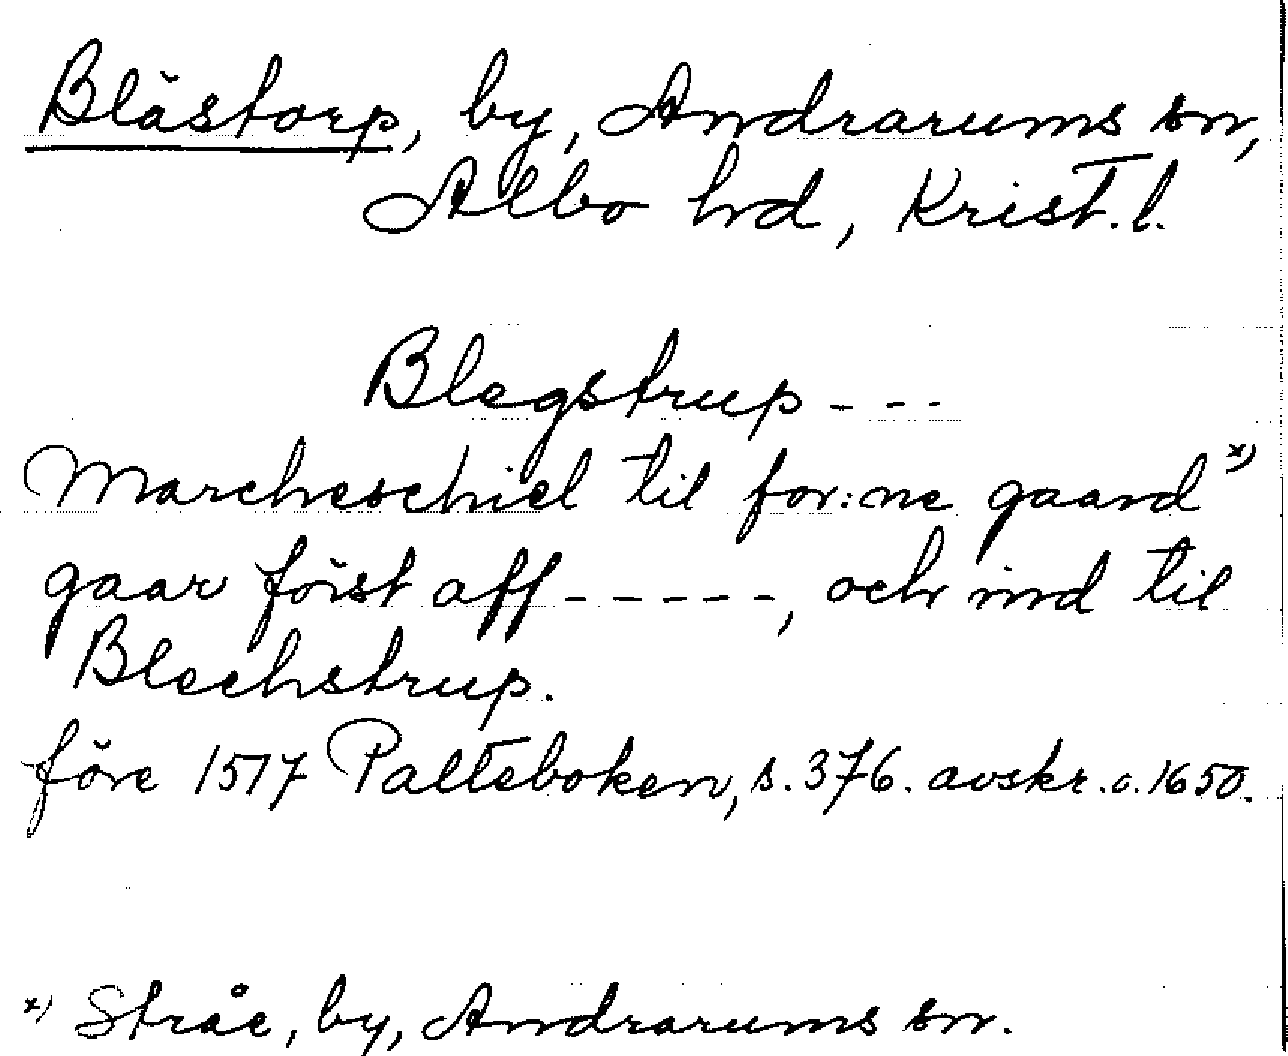 Blåstorp, by, Andrarums sn,
Albo hrd, Krist. l.
Blegstrup - - -
Marcheschiel til for:ne gaard x)
gaar först aff - - - - -, och ind til
Blechstrup.
före 1517 Palteboken, s. 376. avskr. c. 1650.
x) Stråe, by, Andrarums sn.